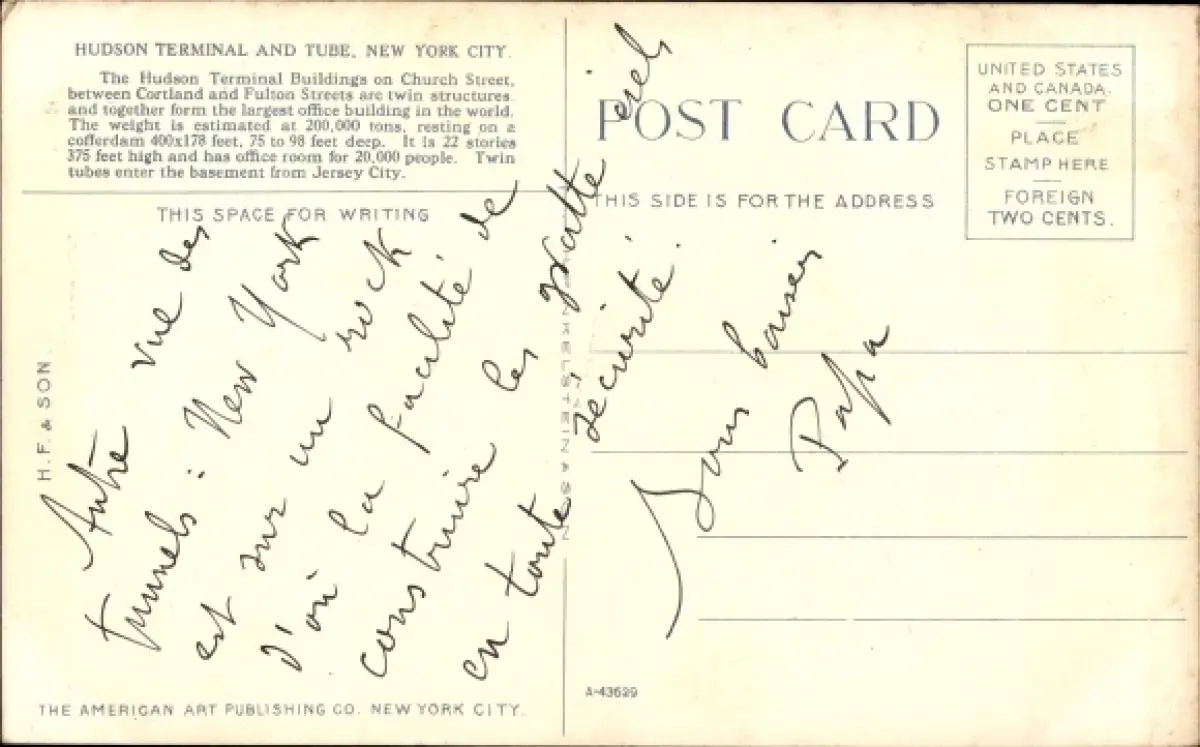 HUDSON TERMINAL AND TUBE, NEW YORK CITY.
The Hudson Terminal Buildings on Church Street,
between Cortland and Fulton Streets are twin structures
and together form the largest office building in the world.
The weight is estimated at 200,000 tons, resting on a
cofferdam 400x178 feet, 75 to 98 feet deep. It is 22 stories
375 feet high and has office room for 20,000 people. Twin
tubes enter the basement from Jersey City.
THIS SPACE FOR WRITING
POST CARD
THIS SIDE IS FOR THE ADDRESS
UNITED STATES
AND CANADA.
ONE CENT
PLACE
STAMP HERE
FOREIGN
TWO CENTS.
Autre vue des
tunnels : New York
est sur un rock
d'où la facilité de
construire les gratte ciels
en toute sécurité.
baiser
Papa
H.F. & SON
THE AMERICAN ART PUBLISHING CO. NEW YORK CITY.
A-43629